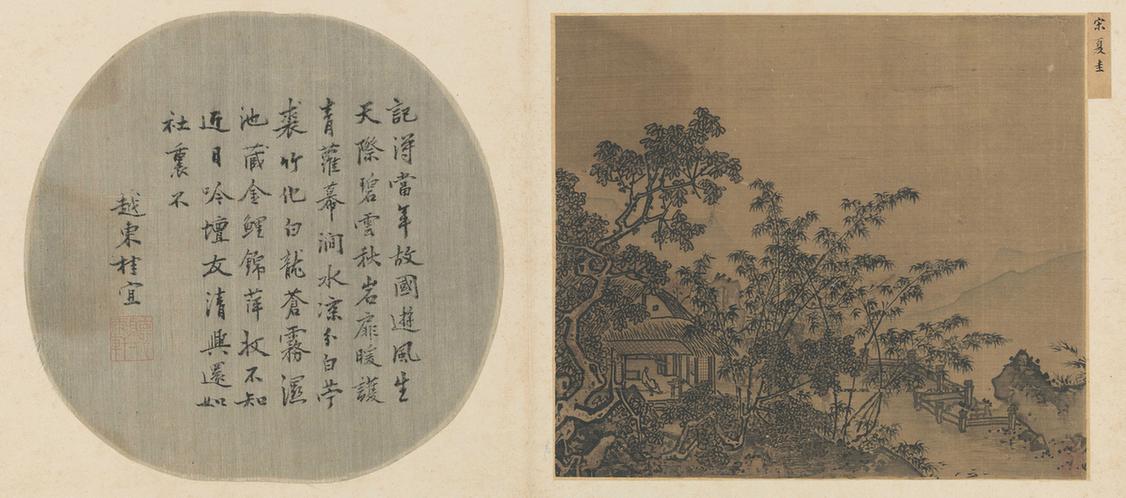 宋夏圭
記得當年故國遊風生
天際碧雲秋岩扉暖護
青蘿幕澗水凉分白苧
裘竹化白龍蒼霧濕
池蔵金鯉錦萍收不知
近日吟壇友清興還如
社裏不
越東桂宜